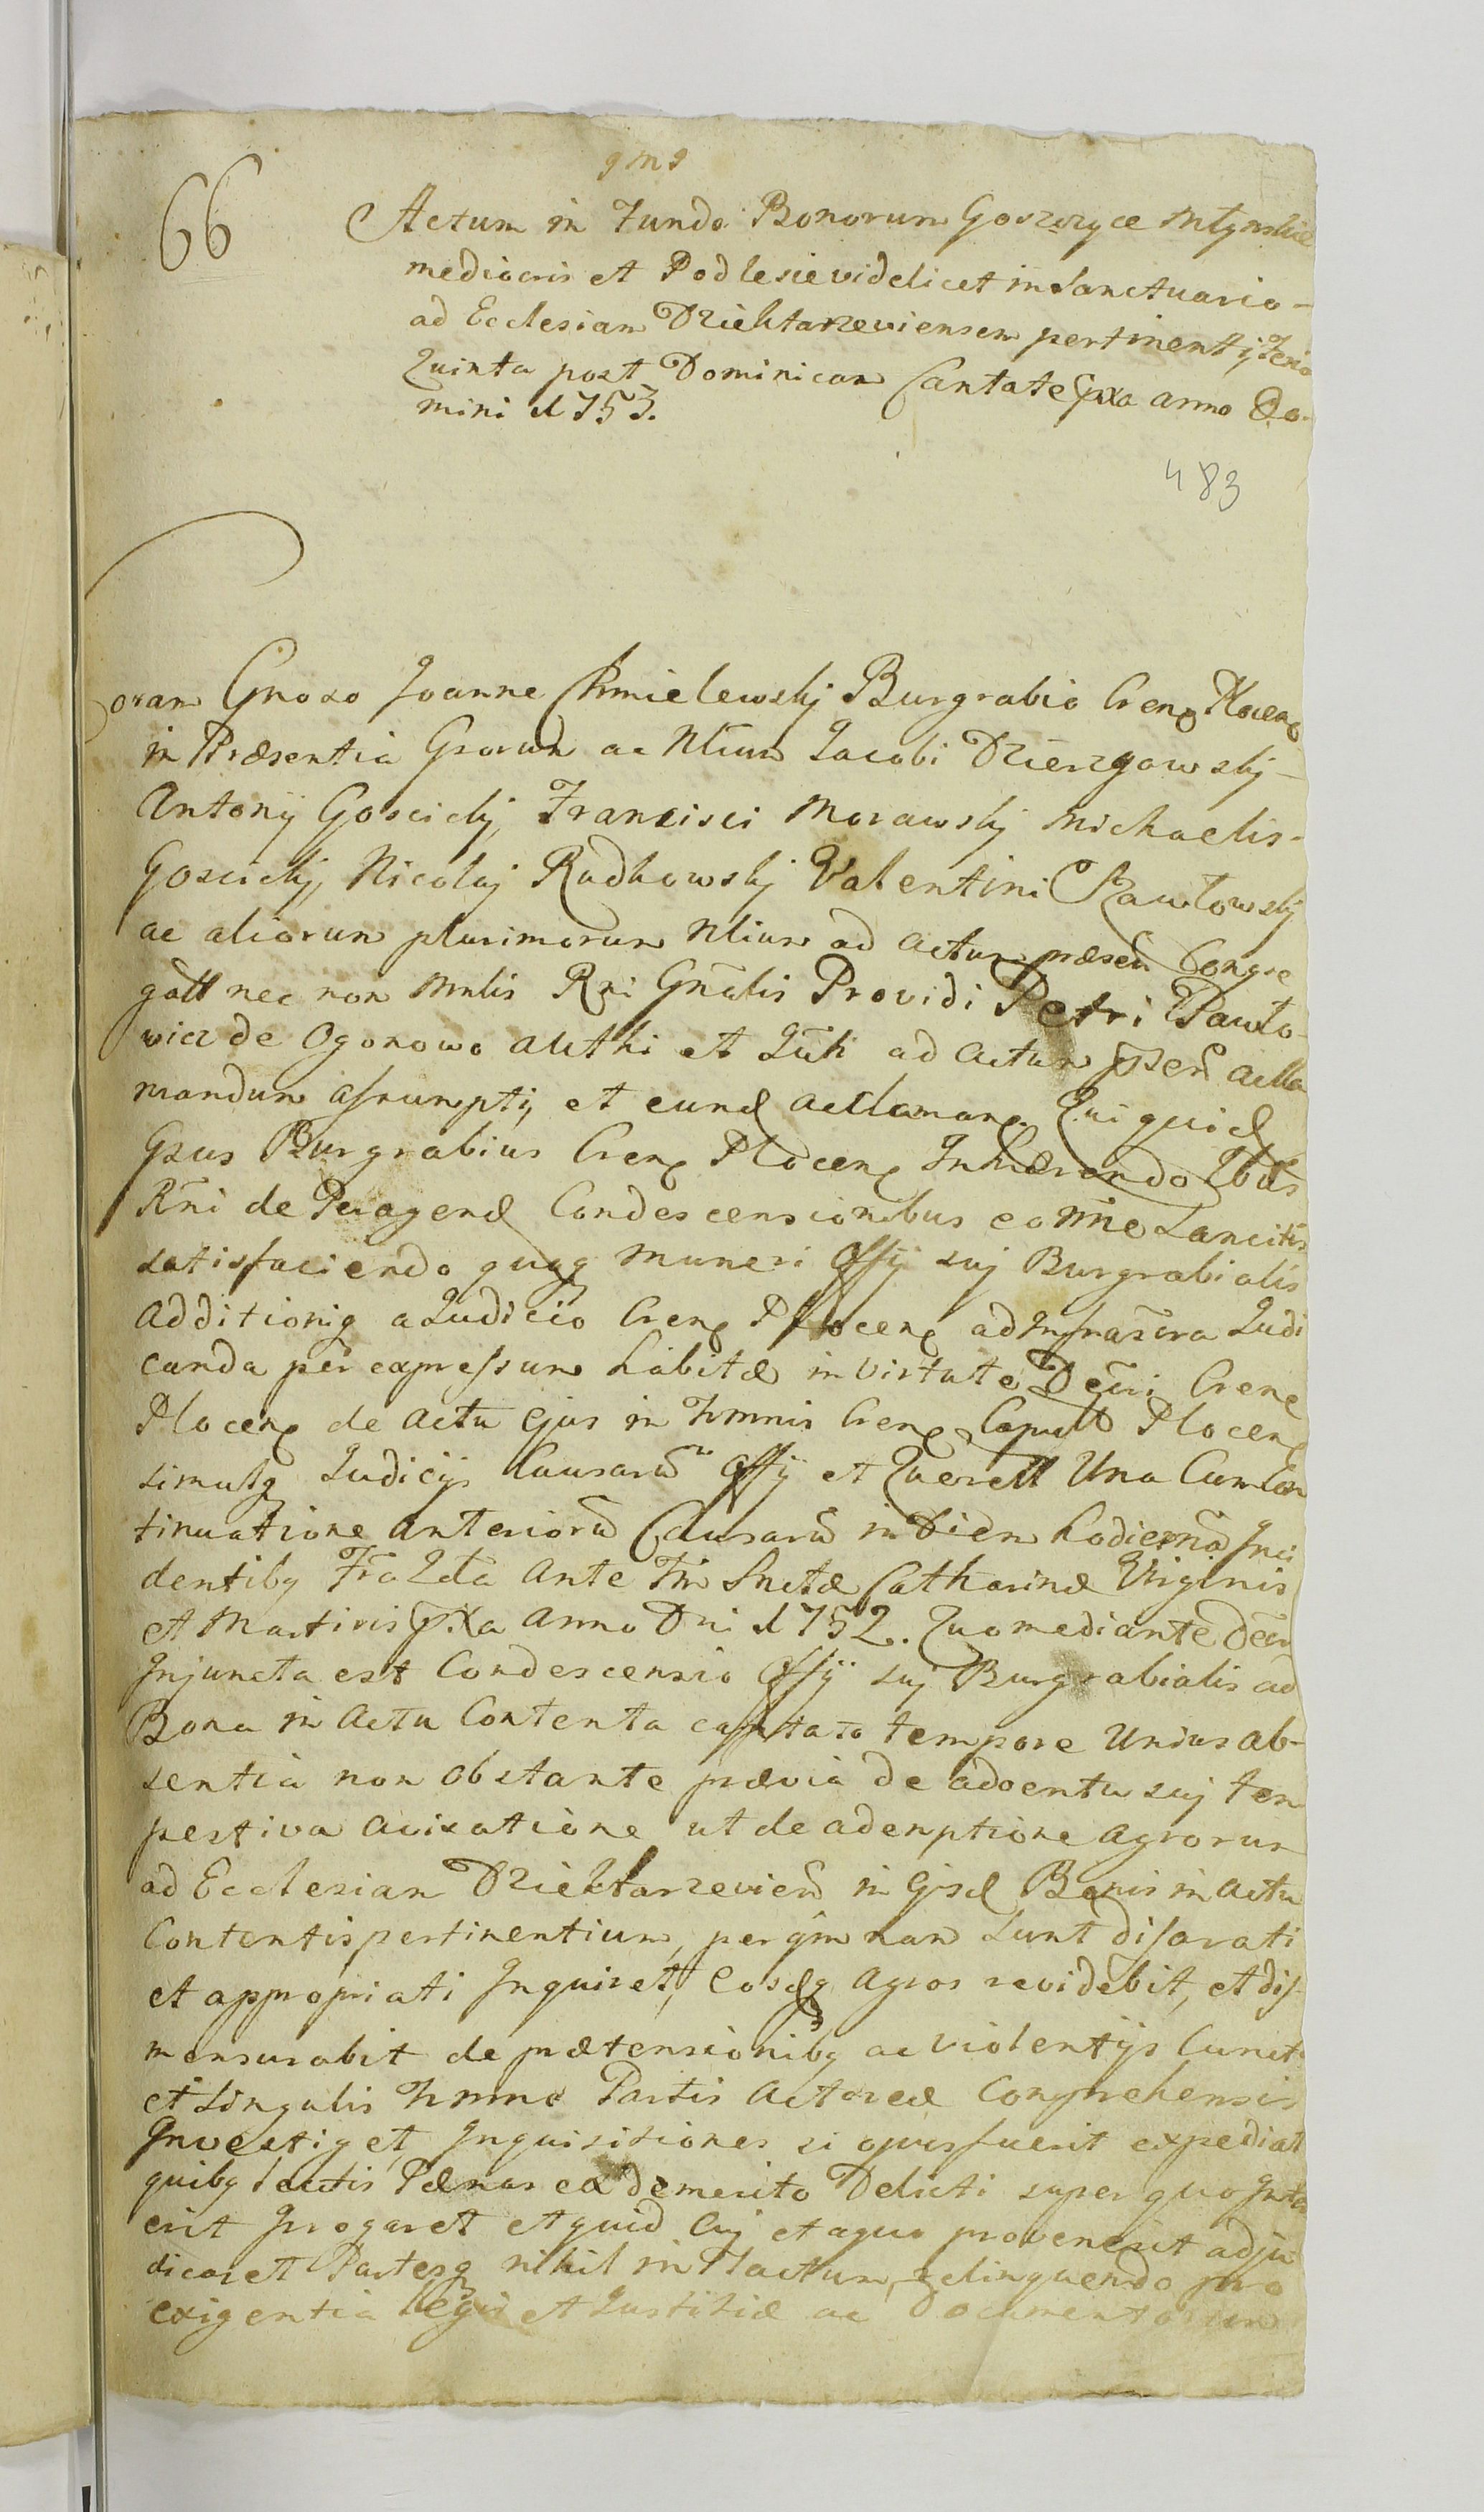 66
Actum in Fundo Bonorum Goszczyce Młynskie
mediocris et Podlesie videlicet in Sanctuario
ad Ecclesiam Dziektarzeviensem pertinenti, Feria
Quinta post Dominicam Cantate pxa anno Do-
mini 1753.
483
Coram Gnoso Joanne Chmielewskj Burgrabio Cren Plocen
in Præsentia Gsorum ac Nlium Jacobi Dzierzgowskj
Antonij Goscickj, Francisci Morawskj Michaelis
Goscickj, Nicolaj Radkowskj Valentini Szawłowskj
ac aliorum plurimorum Nlium ad actum præsen Congre
gatt nec non Mnlis Rni Gnalis Providi Petri Pawło
wicz de Ogonowo authi et Juti ad actum psen accla
mandum assumpti, et eund acclaman. Qui quid
Gsus Burgrabius Cren Plocen Inhærendo lbus
Rni de Peragend Condescensionibus eo nne Sancitis
satisfaciendo quoq muneri Offij suj Burgrabialis
additioniq a Judicio Cren Plocen ad Infrascra Judi
canda per expressum habitæ in virtute Decri Cren
Plocen de actu ejus in Tmnis Cren Capitt Plocen
simulq Judicijs Causarum Offij et Querell Una Cum Con
tinuatione anteriorum Causarum in Diem hodiernam Inci
dentibq Fra 2da ante Fm Snctæ Catharinæ Virginis
et Martiris pxa anno Dni 1752. Quo mediante Decr
Injuncta est Condescensio Offij suj Burgrabialis ad
Bona in actu Contenta captato tempore Unius ab-
sentia non obstante prævia de adventu suj tem
pestiva avisatione ut de ademptione agrorum
ad Ecclesiam Dziektarzevien in Gisd Bonis in actu
Contentis pertinentium, per qm nam sunt disarati
et appropriati Inquiret, Eosdq agros revidebit, et dis-
mensurabit de prætensionibq ac violentijs Cunct
et singulis Tmno Partis Actoreæ Comprehensis
Investiget, Inquisitiones si opus fuerit expediat
quibq lectis Pænas ex demerito Delicti super quo
erit Irrogaret et quid Cuj et a quo provenerit adju
dicaret Partesq nihil in Tactum relinquendo pro
exigentia legis et Justitiæ ac Documentorum